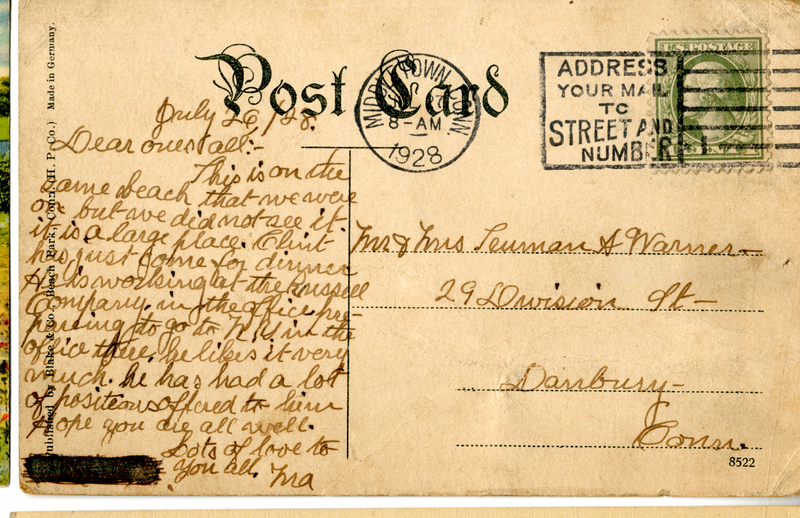 Post Card
July 26/28.
Dear ones all:-
This is on the
same beach that we were
on but we did not see it.
it is a large place. Clint
has just come for dinner
He is working at the Russell
Company in the office pre-
paring to go to N.Y. in the
office there, he likes it very
much. he has had a lot
of positions offered to him
Hope you are all well.
Lots of love to
you all. Ma
Published by Blake & Co., Beach Park, Conn. (H. P. Co.) Made in Germany.
MIDDLETOWN CONN
8-AM
1928
ADDRESS
YOUR MAIL
TO
STREET AND
NUMBER
U.S. POSTAGE
Mr & Mrs Leuman A Warner-
29 Division St-
Danbury-
Conn.
8522